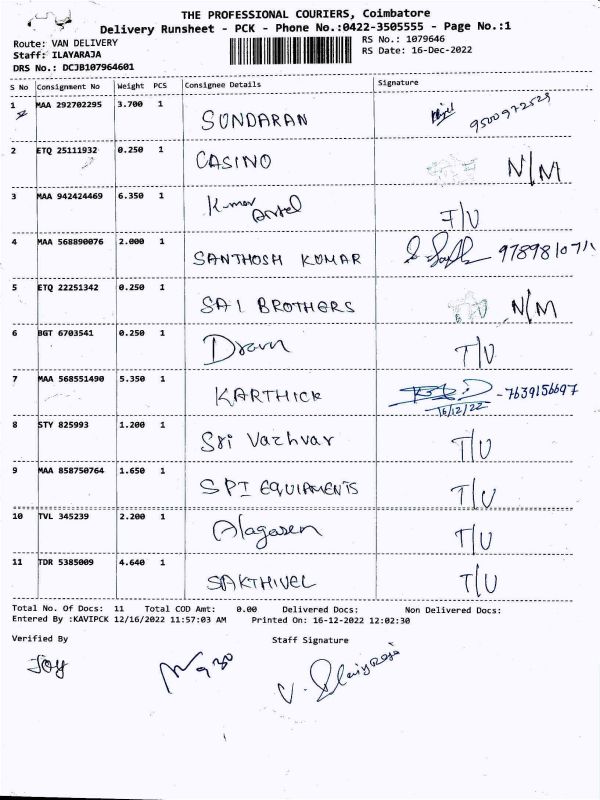 THE PROFESSIONAL COURIERS, Coimbatore
Delivery Runsheet - PCK - Phone No.:0422-3505555 - Page No.:1
Route: VAN DELIVERY RS No.: 1079646
Staff: ILAYARAJA RS Date: 16-Dec-2022
DRS No.: DCJB107964601
S No Consignment No Weight PCS Consignee Details Signature
1 MAA 292702295 3.700 1 SUNDARAN 9500972529
2 ETQ 25111932 0.250 1 CASINO N/M
3 MAA 942424469 6.350 1 Kumar
4 MAA 568890076 2.000 1 SANTHOSH KUMAR
5 ETQ 22251342 0.250 1 SAI BROTHERS N/M
6 BGT 6703541 0.250 1 T/U
7 MAA 568551490 5.350 1 KARTHICK - 7639156697
16/12/22
8 STY 825993 1.200 1 Sri Vazhvar T/U
9 MAA 858750764 1.650 1 SPI EQUIPMENTS T/U
10 TVL 345239 2.200 1 Alagasen T/U
11 TDR 5385009 4.640 1 SAKTHIVEL T/U
Total No. Of Docs: 11 Total COD Amt: 0.00 Delivered Docs: Non Delivered Docs:
Entered By :KAVIPCK 12/16/2022 11:57:03 AM Printed On: 16-12-2022 12:02:30
Verified By Staff Signature
JOY 930 V. Ilaiyaraja